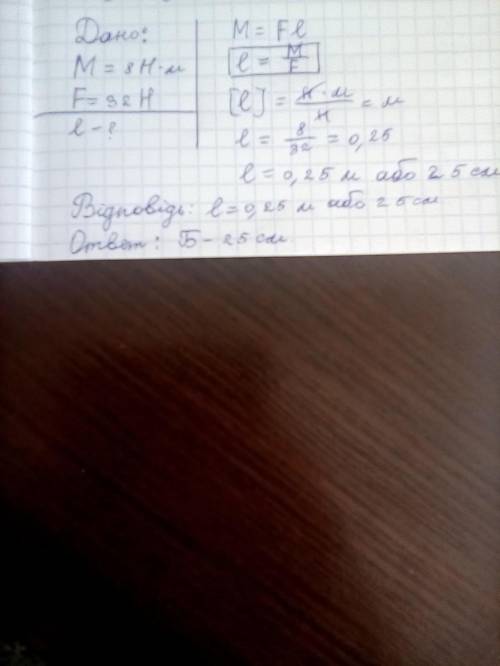 Дано:
M = 8 Н·м
F = 32 Н
l - ?
M = Fl
l = M/F
[l] = Н·м/Н = м
l = 8/32 = 0,25
l = 0,25 м або 25 см
Відповідь: l = 0,25 м або 25 см
Ответ: Б - 25 см